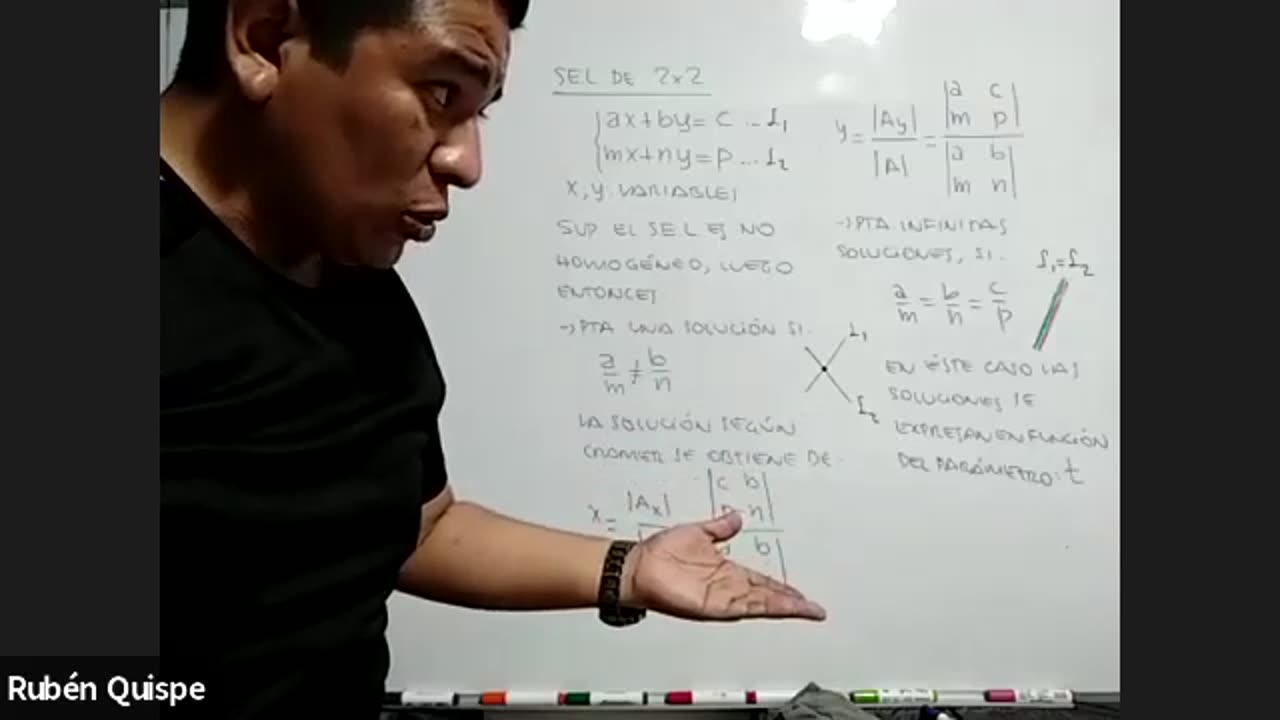 SEL DE 2x2
ax+by= c ... L1
mx+ny= p ... L2
x, y VARIABLES
SUP EL SEL ES NO
HOMOGÉNEO, LUEGO
ENTONCES
→ PTA UNA SOLUCIÓN SI.
a/m ≠ b/n
L1
L2
LA SOLUCIÓN SEGÚN
CRAMER SE OBTIENE DE.
x = |Ax|
|c b|
n|
b|
y = |Ay|/|A| = |a c|
|m p|
|a b|
|m n|
→ PTA INFINITAS
SOLUCIONES, SI.
L1=L2
a/m = b/n = c/p
EN ÉSTE CASO LAS
SOLUCIONES SE
EXPRESAN EN FUNCIÓN
DEL PARÁMETRO: t
Rubén Quispe